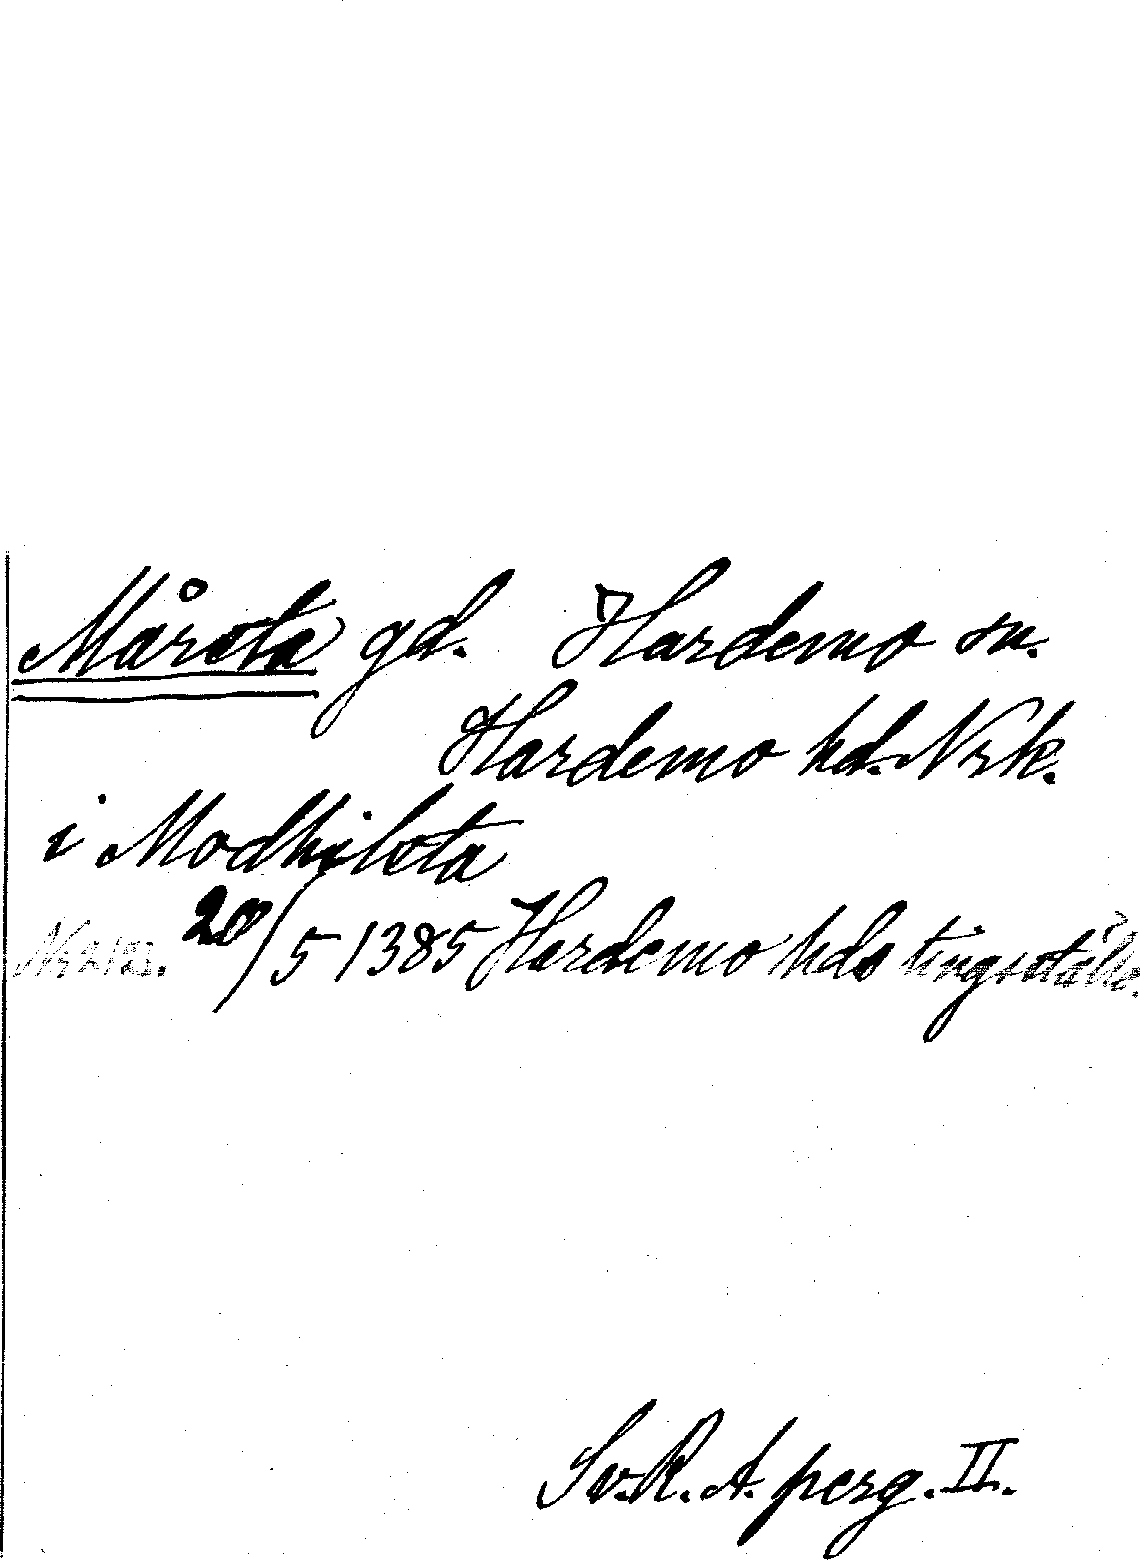 Mårsta gd. Hardemo sn.
Hardemo hd. Nrk.
i Modhilsta
20/5 1385 Hardemo hds tingsställe.
Sv. R. A. perg. II.